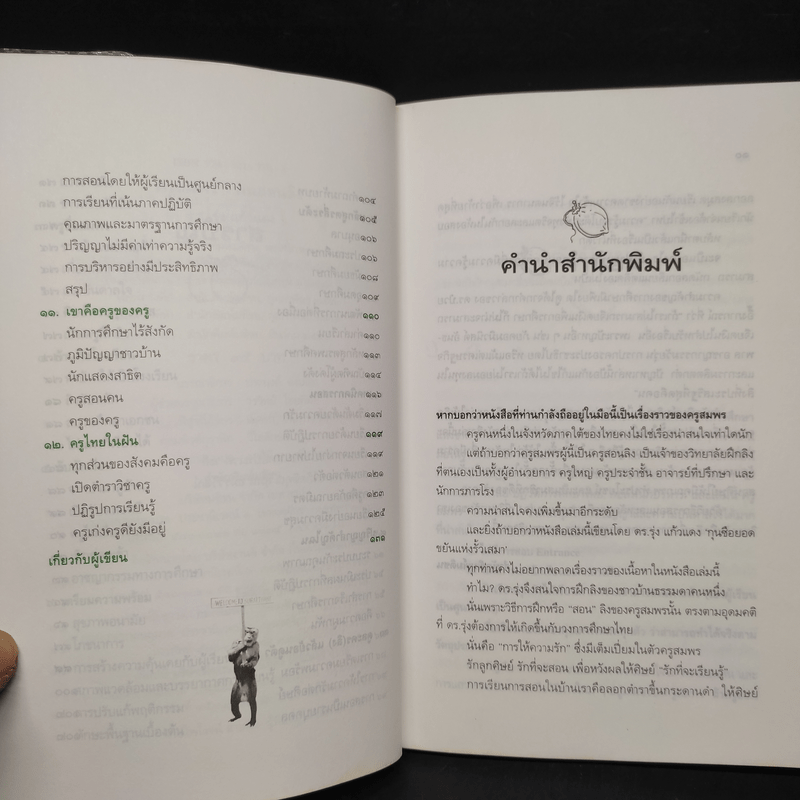 การสอนโดยให้ผู้เรียนเป็นศูนย์กลาง ๑๐๔
การเรียนที่เน้นภาคปฏิบัติ ๑๐๕
คุณภาพและมาตรฐานการศึกษา ๑๐๖
ปริญญาไม่มีค่าเท่าความรู้จริง ๑๐๖
การบริหารอย่างมีประสิทธิภาพ ๑๐๘
สรุป ๑๐๙
๑๑. เขาคือครูของครู ๑๑๐
นักการศึกษาไร้สังกัด ๑๑๐
ภูมิปัญญาชาวบ้าน ๑๑๓
นักแสดงสาธิต ๑๑๔
ครูสอนคน ๑๑๖
ครูของครู ๑๑๗
๑๒. ครูไทยในฝัน ๑๑๙
ทุกส่วนของสังคมคือครู ๑๑๙
เปิดตำราวิชาครู ๑๒๑
ปฏิรูปการเรียนรู้ ๑๒๓
ครูเก่งครูดียังมีอยู่ ๑๒๕
เกี่ยวกับผู้เขียน ๑๓๑
คำนำสำนักพิมพ์
หากบอกว่าหนังสือที่ท่านกำลังถืออยู่ในมือนี้เป็นเรื่องราวของครูสมพร
ครูคนหนึ่งในจังหวัดภาคใต้ของไทยคงไม่ใช่เรื่องน่าสนใจเท่าใดนัก
แต่ถ้าบอกว่าครูสมพรผู้นี้เป็นครูสอนลิง เป็นเจ้าของวิทยาลัยฝึกลิง
ที่ตนเองเป็นทั้งผู้อำนวยการ ครูใหญ่ ครูประจำชั้น อาจารย์ที่ปรึกษา และ
นักการภารโรง
ความน่าสนใจคงเพิ่มขึ้นมาอีกระดับ
และยิ่งถ้าบอกว่าหนังสือเล่มนี้เขียนโดย ดร.รุ่ง แก้วแดง 'กุนซือยอด
ขยันแห่งรั้วเสมา'
ทุกท่านคงไม่อยากพลาดเรื่องราวของเนื้อหาในหนังสือเล่มนี้
ทำไม? ดร.รุ่งจึงสนใจการฝึกลิงของชาวบ้านธรรมดาคนหนึ่ง
นั่นเพราะวิธีการฝึกหรือ "สอน" ลิงของครูสมพรนั้น ตรงตามอุดมคติ
ที่ ดร.รุ่งต้องการให้เกิดขึ้นกับวงการศึกษาไทย
นั่นคือ "การให้ความรัก" ซึ่งมีเต็มเปี่ยมในตัวครูสมพร
รักลูกศิษย์ รักที่จะสอน เพื่อหวังผลให้ศิษย์ "รักที่จะเรียนรู้"
การเรียนการสอนในบ้านเราคือลอกตำราขึ้นกระดานดำ ให้ศิษย์